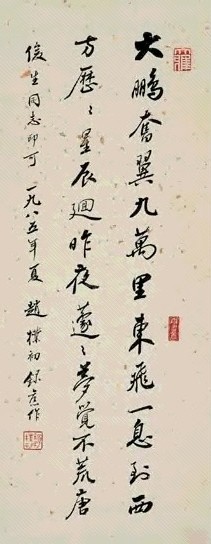 大鵬奮翼九萬里東飛一息到西
方歷〻星辰迴昨夜蘧〻夢覺不荒唐
俊生同志印可 一九八五年夏 趙樸初 録舊作